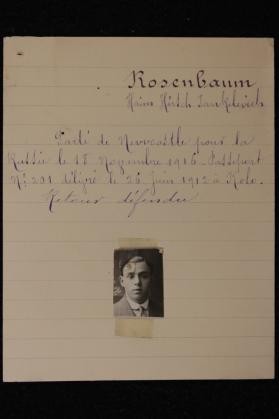 Rosenbaum
Haim Hirsch Jankelevich
Parti de Newcastle pour la
Russie le 18 Novembre 1916 - Passeport
No: 201 délivré le 26 Juin 1912 à Kolo.
Retour défendu